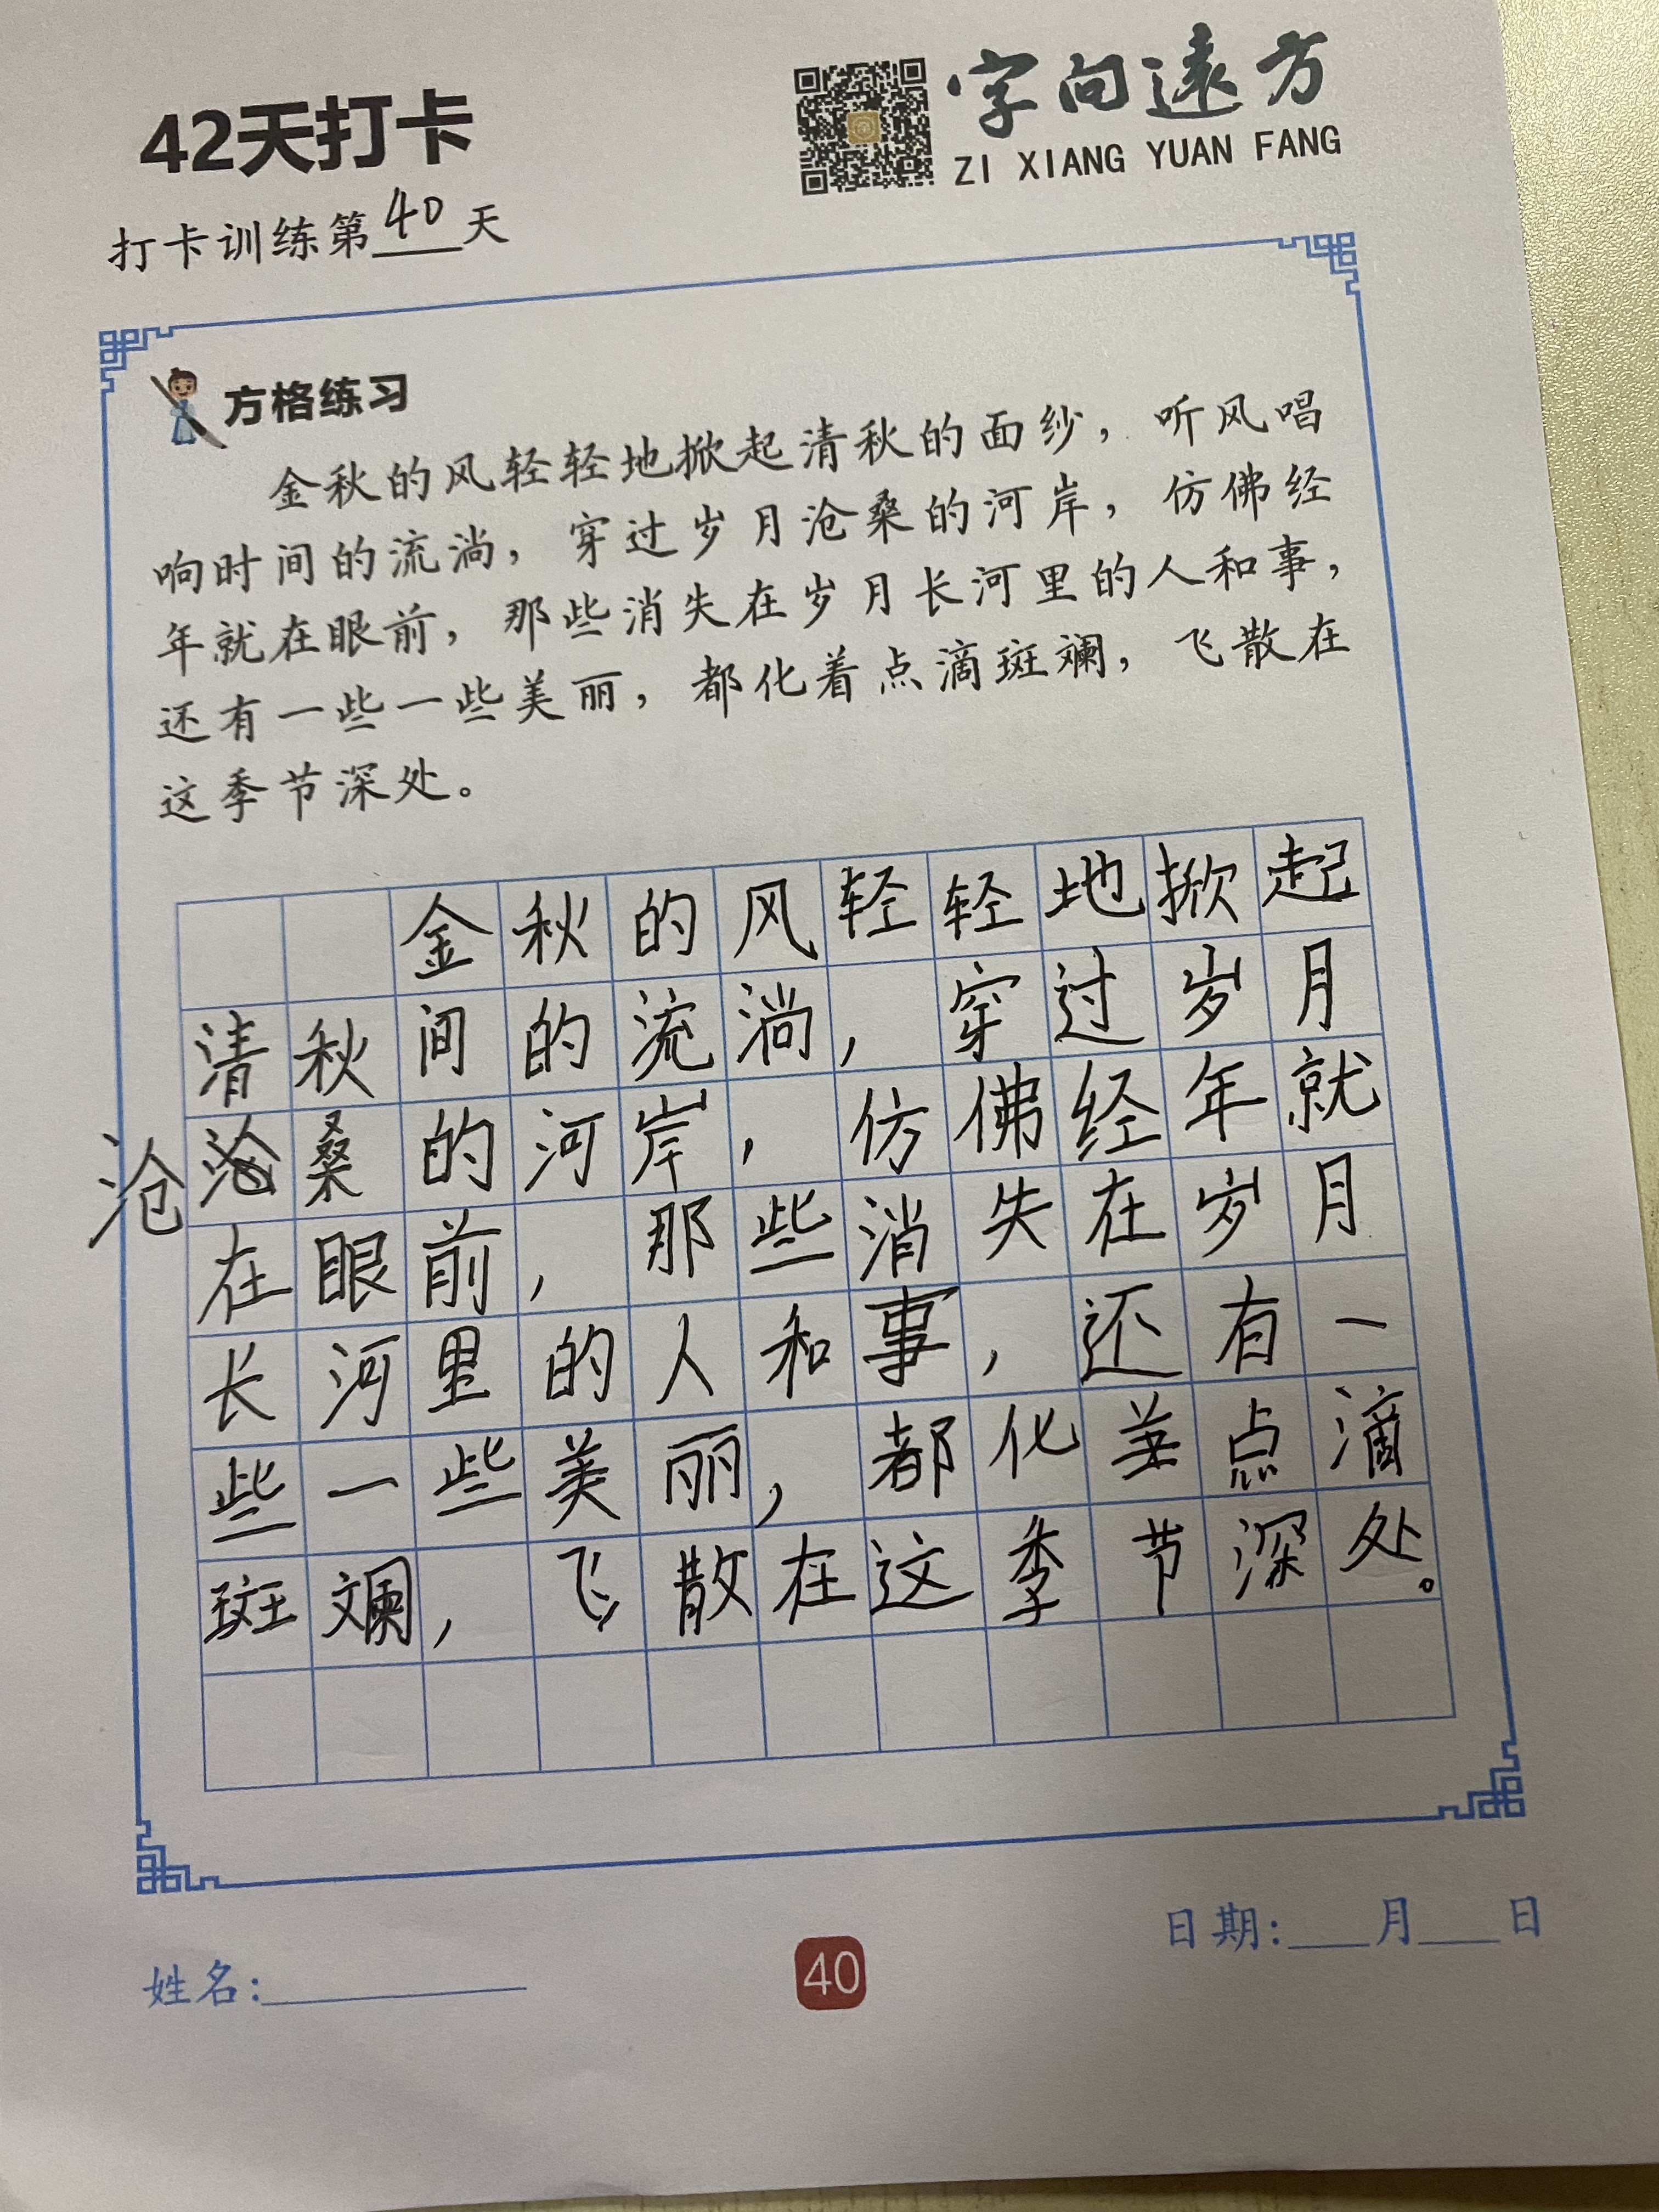 42天打卡
字向遠方
ZI XIANG YUAN FANG
打卡训练第40天
方格练习
金秋的风轻轻地掀起清秋的面纱，听风唱
响时间的流淌，穿过岁月沧桑的河岸，仿佛经
年就在眼前，那些消失在岁月长河里的人和事，
还有一些一些美丽，都化着点滴斑斓，飞散在
这季节深处。
金秋的风轻轻地掀起
清秋间的流淌，穿过岁月
沧沧桑的河岸，仿佛经年就
在眼前，那些消失在岁月
长河里的人和事，还有一
些一些美丽，都化着点滴
斑斓，飞散在这季节深处。
日期:___月___日
姓名:
40